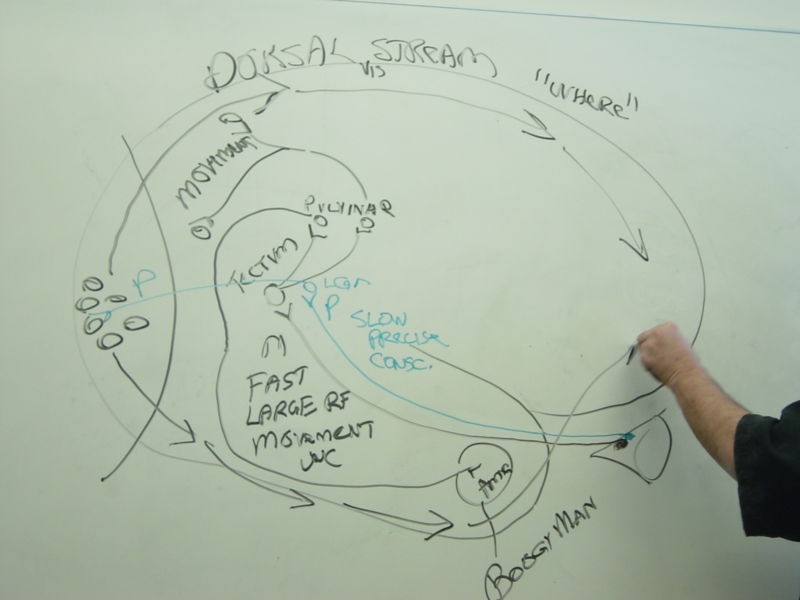 DORSAL STREAM
VIS
"WHERE"
MOVEMENT
PULVINAR
TECTUM
P
LGN
P
SLOW
PRECISE
CONSC.
M
FAST
LARGE RF
MOVEMENT
UNC
AMG
BOOGYMAN